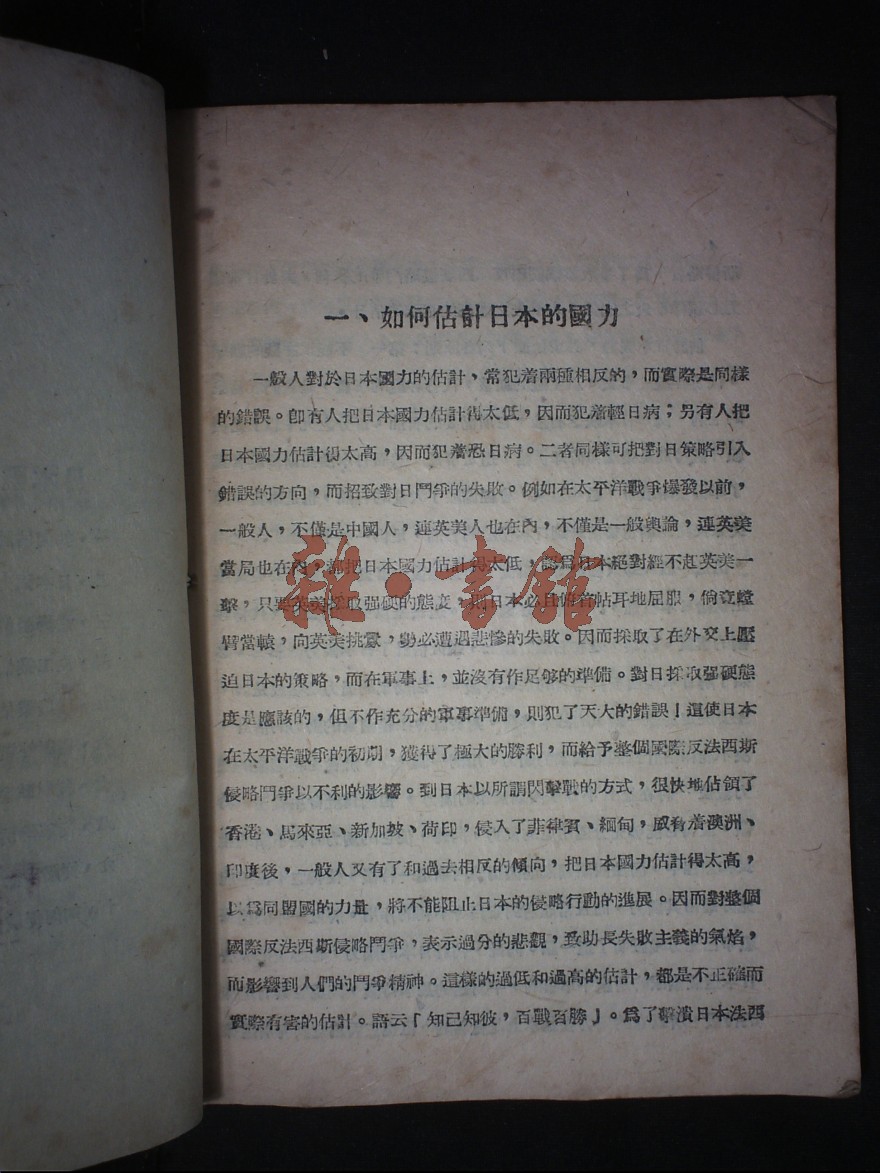 一、如何估計日本的國力
一般人對於日本國力的估計、常犯着兩種相反的，而實際是同樣
的錯誤。卽有人把日本國力估計得太低，因而犯着輕日病；另有人把
日本國力估計得太高，因而犯着恐日病。二者同樣可把對日策略引入
錯誤的方向，而招致對日鬥爭的失敗。例如在太平洋戰爭爆發以前，
一般人，不僅是中國人，連英美人也在內，不僅是一般輿論，連英美
當局也在內，都把日本國力估計得太低，認爲日本絕對經不起英美一
擊，只要英美採取强硬的態度，則日本必且俯首帖耳地屈服，倘竟螳
臂當轅，向英美挑釁，勢必遭遇悲慘的失敗。因而採取了在外交上壓
迫日本的策略，而在軍事上，並沒有作足够的準備。對日採取强硬態
度是應該的，但不作充分的軍事準備，則犯了天大的錯誤！這使日本
在太平洋戰爭的初期，獲得了極大的勝利，而給予整個國際反法西斯
侵略鬥爭以不利的影響。到日本以所謂閃擊戰的方式，很快地佔領了
香港、馬來亞、新加坡、荷印，侵入了菲律賓、緬甸，威脅着澳洲、
印度後，一般人又有了和過去相反的傾向，把日本國力估計得太高，
以爲同盟國的力量，將不能阻止日本的侵略行動的進展。因而對整個
國際反法西斯侵略鬥爭，表示過分的悲觀，致助長失敗主義的氣焰，
而影響到人們的鬥爭精神。這樣的過低和過高的估計，都是不正確而
實際有害的估計。語云「知己知彼，百戰百勝」。爲了擊潰日本法西
雜·書館